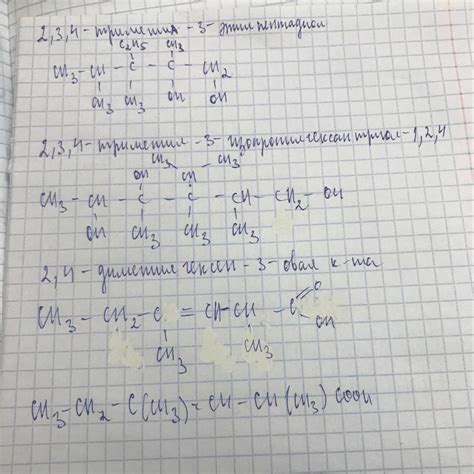 2,3,4-триметил-3-этилпентадиол
C₂H₅ CH₃
CH₃-CH-C-C-CH₂
CH₃ CH₃ OH OH
2,3,4-триметил-3-изопропилгексантриол-1,2,4
CH₃ CH₃
OH CH
CH₃-CH-C-C-CH-CH₂-OH
OH CH₃ CH₃ CH₃
2,4-диметилгексен-3-овая к-та
O
CH₃-CH₂-C=CH-CH-C
OH
CH₃ CH₃
CH₃-CH₂-C(CH₃)=CH-CH(CH₃)COOH